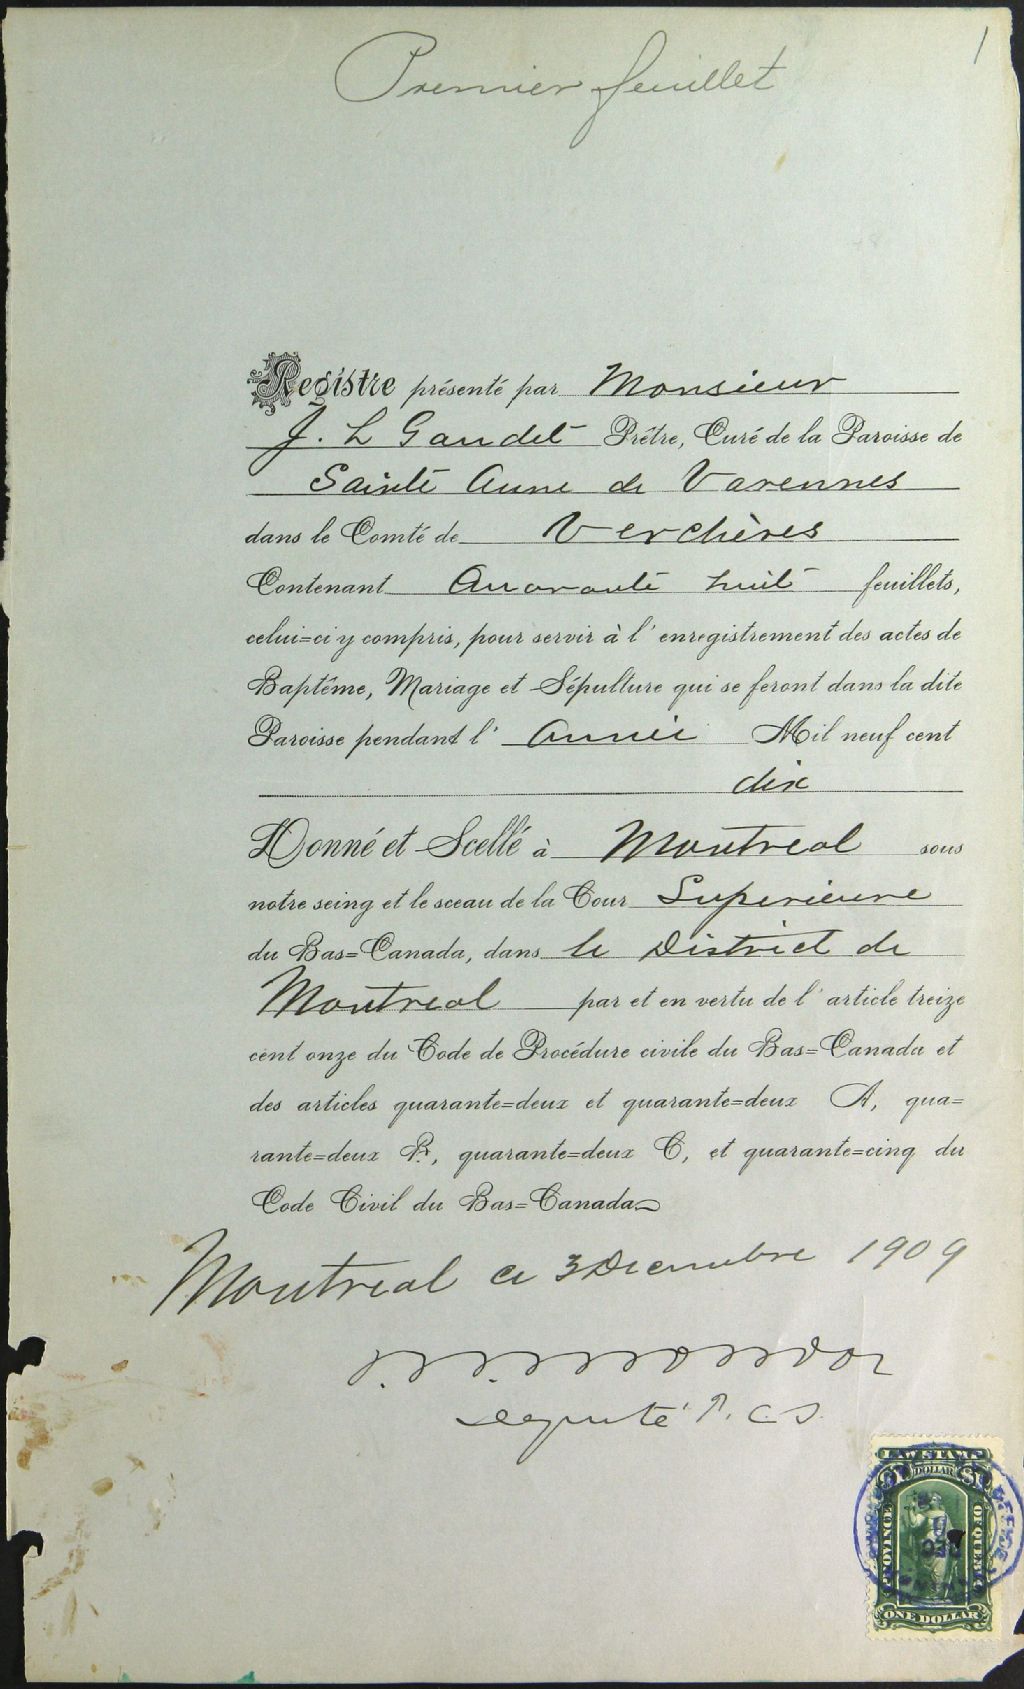 Premier feuillet
1
Registre présenté par Monsieur
J. L Gaudet Prêtre, Curé de la Paroisse de
Sainte Anne de Varennes
dans le Comté de Verchères
Contenant Quarante huit feuillets,
celui=ci y compris, pour servir à l'enregistrement des actes de
Baptême, Mariage et Sépulture qui se feront dans la dite
Paroisse pendant l'Année Mil neuf cent
dix
Donné et Scellé à Montreal sous
notre seing et le sceau de la Cour Superieure
du Bas=Canada, dans le District de
Montreal par et en vertu de l'article treize
cent onze du Code de Procédure civile du Bas=Canada et
des articles quarante=deux et quarante=deux A, qua=
rante=deux B, quarante=deux C, et quarante=cinq du
Code Civil du Bas=Canada
Montreal ce 3 Decembre 1909
Deputé P. C. S.
LAW STAMP
$1 DOLLAR $1
PROVINCE OF QUEBEC
ONE DOLLAR